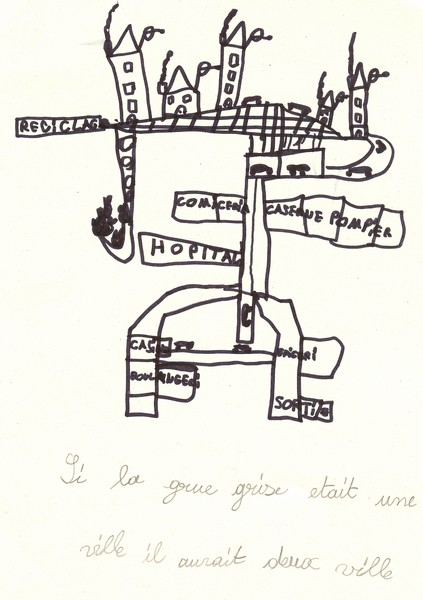 RECICLAGE
COMICERIA
CASERNE POMPIER
HOPITAL
EPICERI
BOULANGERI
SORTIE
Si la grue grise etait une
ville il aurait deux ville